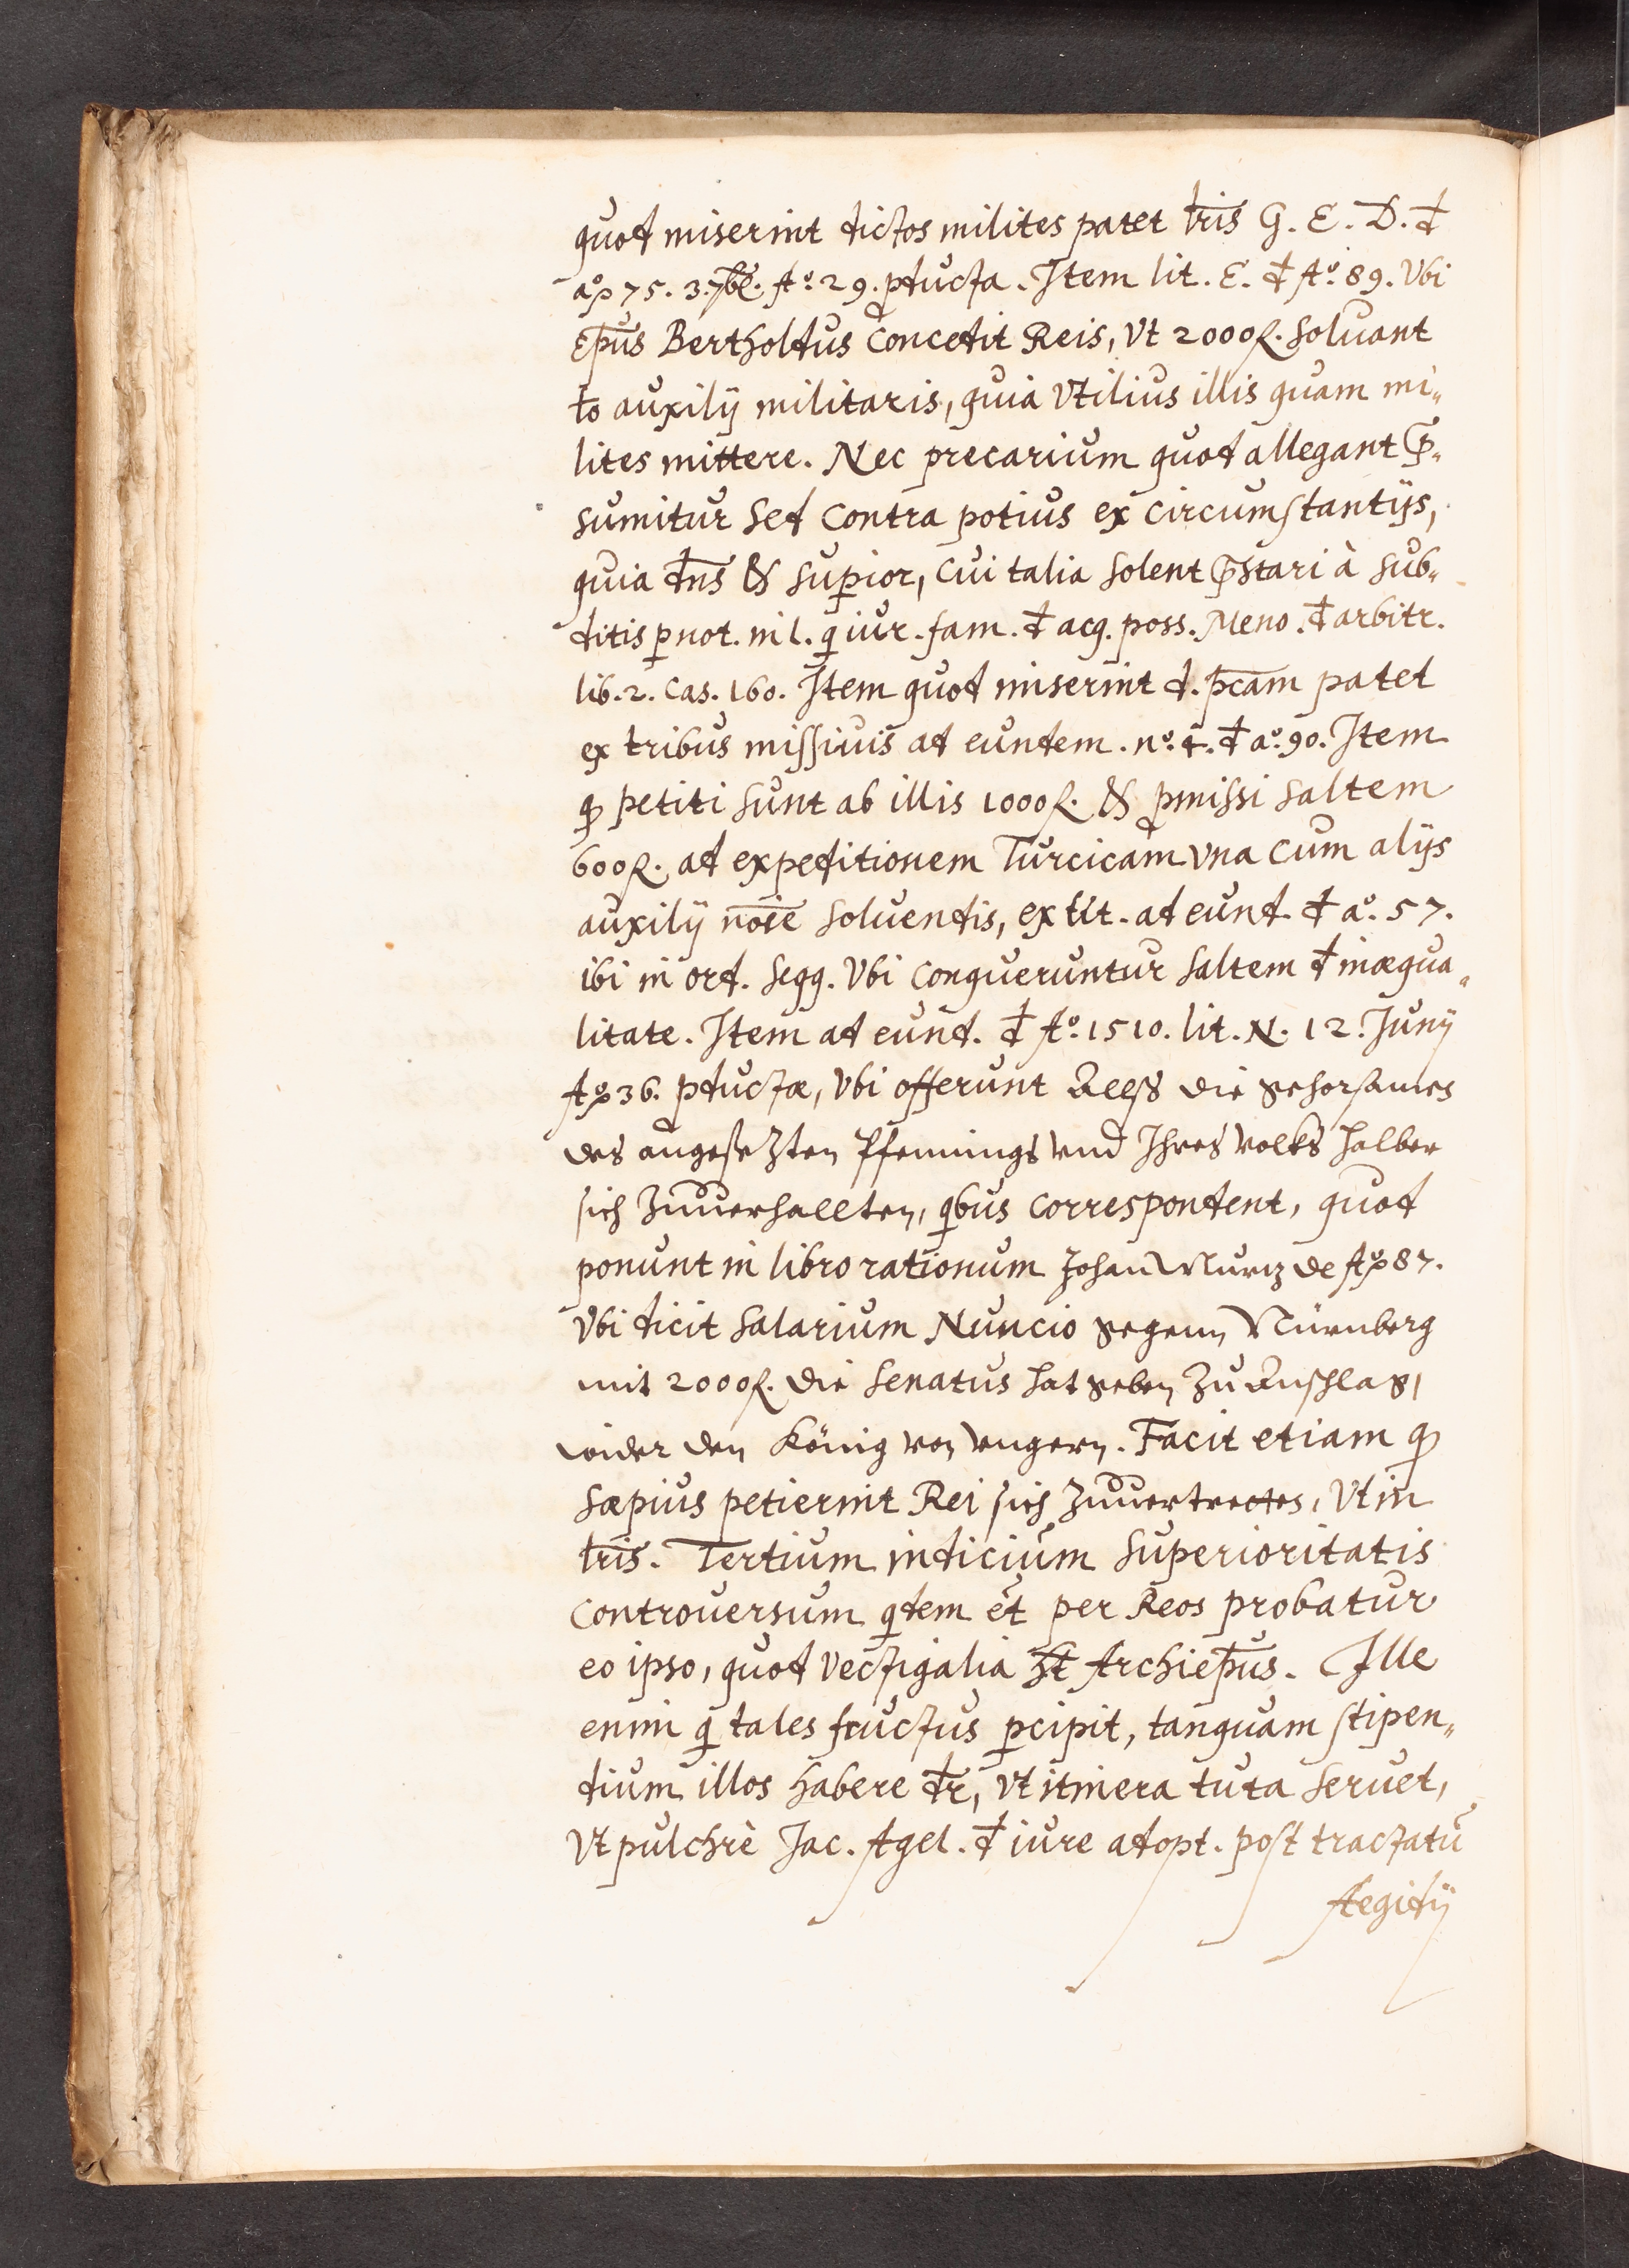 quod miserint dictos milites patet lris G. E. D. đ
aō 75. 3. 7br. Aº. 29. pducta. Item lit. E. đ Aº. 89. Vbi
Epūs Bertholdus concedit Reis, Vt 2000 fl. soluant
loco auxilij militaris, quia Vtilius illis quam mi„
lites mittere. Nec precarium quod allegant p̄„
sumitur sed contra potius ex circumstantijs,
quia dn̄s & supior, cui talia solent p̄stari à sub„
ditis p not. in l. qi iur. fam. đ acq. poss. Meno. đ arbitr.
lib. 2. cas. 160. Item quod miserint d. pcam patet
ex tribus missiuis ad eundem. nº. 4. đ aº. 90. Item
q petiti sunt ab illis 1000 fl. & pmissi saltem
600 fl. ad expeditionem Turcicam vna cum alijs
auxilij nōie soluendis, ex lit. ad eund. đ aº. 57.
ibi in ord. seqq. Vbi conqueruntur saltem đ inæqua„
litate. Item ad eund. đ Aº. 1510. lit. N. 12. Junij
Aō 36. pductæ, Vbi offerunt Allß die gehorsames
des angesetzten Pfennings vnd Ihres volks halber
sich Zuuerhallten, qbus correspondent, quod
ponunt in libro rationum Johan Murz de Aō 87.
Vbi dicit salarium Nuncio gegenn Nürnberg
mit 2000 fl. die Senatus hat geben Zu Anschlag,
wider den König von vngern. Facit etiam q
sæpius petierint Rei sich Zuuertrettes, Vt in
lris. Tertium indicium superioritatis
controuersum qdem et per Reos probatur
eo ipso, quod Vectigalia ht Archiepūs. Ille
enim qi tales fructus pcipit, tanquam stipen„
dium illos habere dr, Vt itinera tuta seruet,
Vt pulchrè Jac. Agel. đ iure adopt. post tractatū
Aegidij